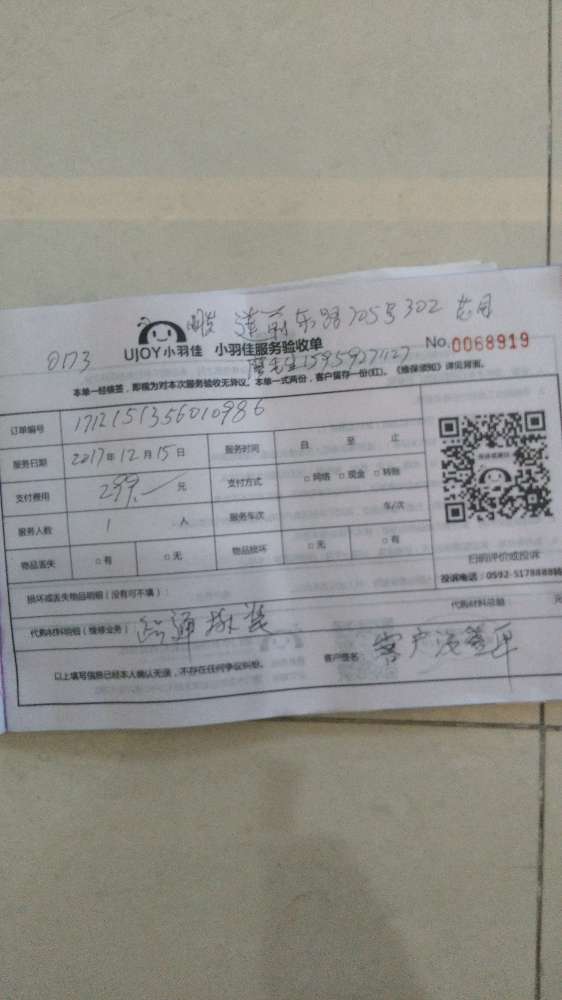 莲前东路705号302
0173
UJOY小羽佳 小羽佳服务验收单 No.0068919
唐先生15959271127
本单一经接签，即视为对本次服务验收无异议。本单一式两份，客户留存一份(红)。《维保须知》详见背面。
订单编号 1712151356010986
服务日期 2017年12月15日 服务时间 自 至 止
支付费用 299 元 支付方式 □网络 □现金 □转账
服务人数 1 人 服务车次 车/次
物品丢失 □有 □无 物品损坏 □无 □有
扫码评价或投诉
投诉电话：0592-5178888转
损坏或丢失物品明细（没有可不填）：
代购材料明细（维修业务）： 代购材料总额： 元
以上填写信息已经本人确认无误，不存在任何争议纠纷。 客户签名： 客户没签单